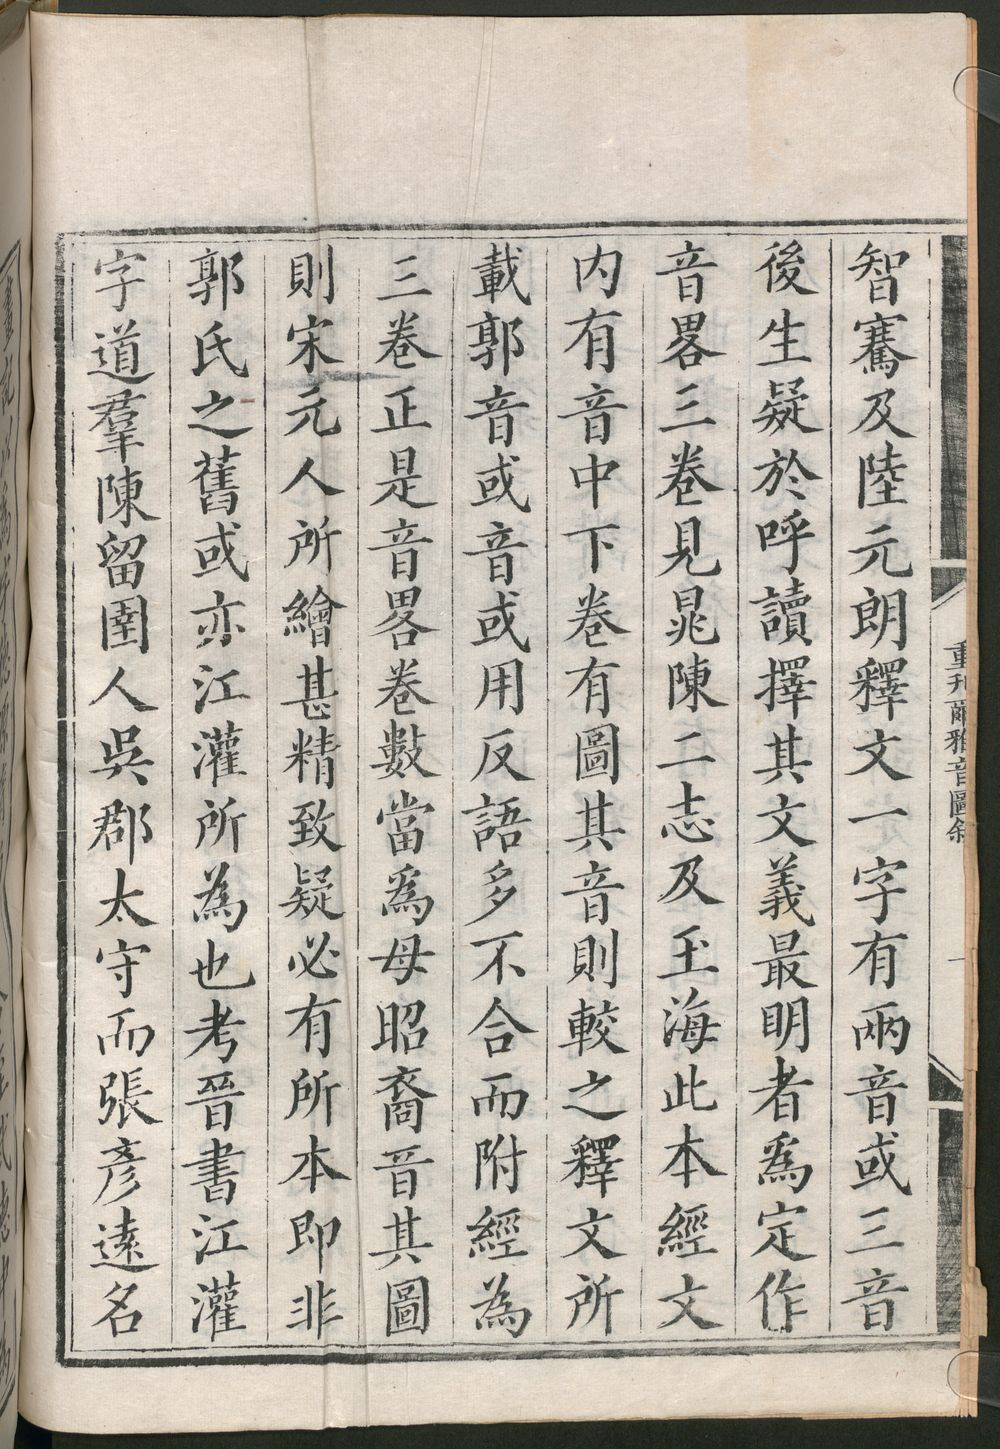 智騫及陸元朗釋文一字有兩音或三音
後生疑於呼讀擇其文義最明者為定作
音畧三卷見晁陳二志及玉海此本經文
內有音中下卷有圖其音則較之釋文所
載郭音或音或用反語多不合而附經為
三卷正是音畧卷數當爲母昭裔音其圖
則宋元人所繪甚精致疑必有所本即非
郭氏之舊或亦江灌所為也考晉書江灌
字道羣陳留圉人吳郡太守而張彥遠名
重刊爾雅音圖叙